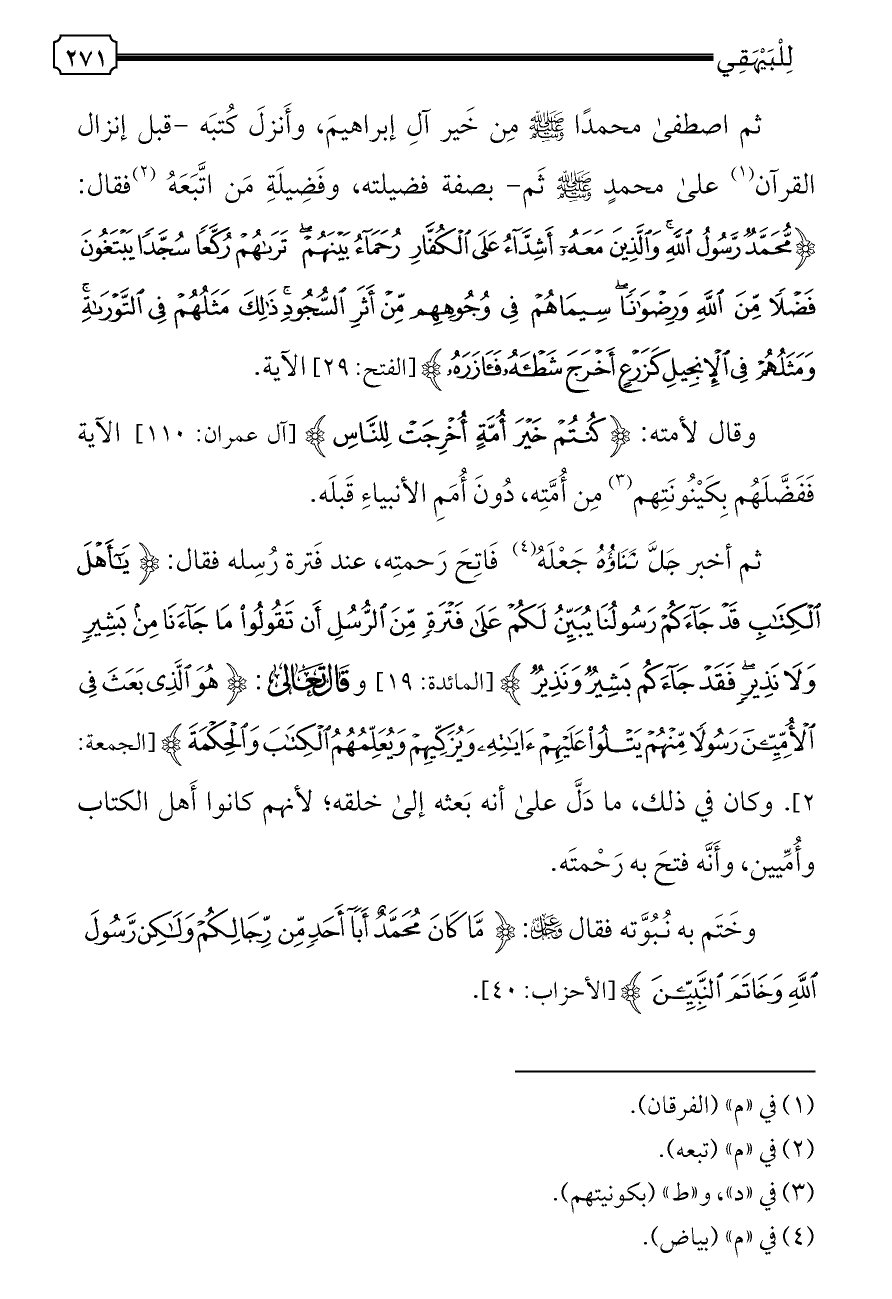 لِلْبَيْهَقِي ٢٧١
ثم اصطفىٰ محمدًا ﷺ مِن خَير آلِ إبراهيمَ، وأَنزلَ كُتبَه -قبل إنزال
القرآن(١) علىٰ محمدٍ ﷺ ثَم- بصفة فضيلته، وفَضِيلَةِ مَن اتَّبَعَهُ(٢) فقال:
﴿مُّحَمَّدٌ رَّسُولُ ٱللَّهِۚ وَٱلَّذِينَ مَعَهُۥٓ أَشِدَّآءُ عَلَى ٱلْكُفَّارِ رُحَمَآءُ بَيْنَهُمْۖ تَرَىٰهُمْ رُكَّعًا سُجَّدًا يَبْتَغُونَ
فَضْلًا مِّنَ ٱللَّهِ وَرِضْوَٰنًاۖ سِيمَاهُمْ فِى وُجُوهِهِم مِّنْ أَثَرِ ٱلسُّجُودِۚ ذَٰلِكَ مَثَلُهُمْ فِى ٱلتَّوْرَىٰةِۚ
وَمَثَلُهُمْ فِى ٱلْإِنجِيلِ كَزَرْعٍ أَخْرَجَ شَطْـَٔهُۥ فَـَٔازَرَهُۥ﴾ [الفتح: ٢٩] الآية.
وقال لأمته: ﴿كُنتُمْ خَيْرَ أُمَّةٍ أُخْرِجَتْ لِلنَّاسِ﴾ [آل عمران: ١١٠] الآية
فَفَضَّلَهُم بِكَيْنُونَتِهم(٣) مِن أُمَّتِه، دُونَ أُمَمِ الأنبياءِ قَبلَه.
ثم أخبر جَلَّ ثَنَاؤُهُ جَعْلَهُ(٤) فَاتِحَ رَحمتِه، عند فَترة رُسِله فقال: ﴿يَـٰٓأَهْلَ
ٱلْكِتَـٰبِ قَدْ جَآءَكُمْ رَسُولُنَا يُبَيِّنُ لَكُمْ عَلَىٰ فَتْرَةٍ مِّنَ ٱلرُّسُلِ أَن تَقُولُوا۟ مَا جَآءَنَا مِنۢ بَشِيرٍ
وَلَا نَذِيرٍۖ فَقَدْ جَآءَكُم بَشِيرٌ وَنَذِيرٌ﴾ [المائدة: ١٩] و قَالَ تَعَالَىٰ: ﴿هُوَ ٱلَّذِى بَعَثَ فِى
ٱلْأُمِّيِّـۧنَ رَسُولًا مِّنْهُمْ يَتْلُوا۟ عَلَيْهِمْ ءَايَـٰتِهِۦ وَيُزَكِّيهِمْ وَيُعَلِّمُهُمُ ٱلْكِتَـٰبَ وَٱلْحِكْمَةَ﴾ [الجمعة:
٢]. وكان في ذلك، ما دَلَّ علىٰ أنه بَعثه إلىٰ خلقه؛ لأنهم كانوا أَهل الكتاب
وأُمِّيين، وأَنَّه فتحَ به رَحْمتَه.
وخَتَم به نُبُوَّته فقال ﷿: ﴿مَّا كَانَ مُحَمَّدٌ أَبَآ أَحَدٍ مِّن رِّجَالِكُمْ وَلَـٰكِن رَّسُولَ
ٱللَّهِ وَخَاتَمَ ٱلنَّبِيِّـۧنَ﴾ [الأحزاب: ٤٠].
(١) في «م» (الفرقان).
(٢) في «م» (تبعه).
(٣) في «د»، و«ط» (بكونيتهم).
(٤) في «م» (بياض).